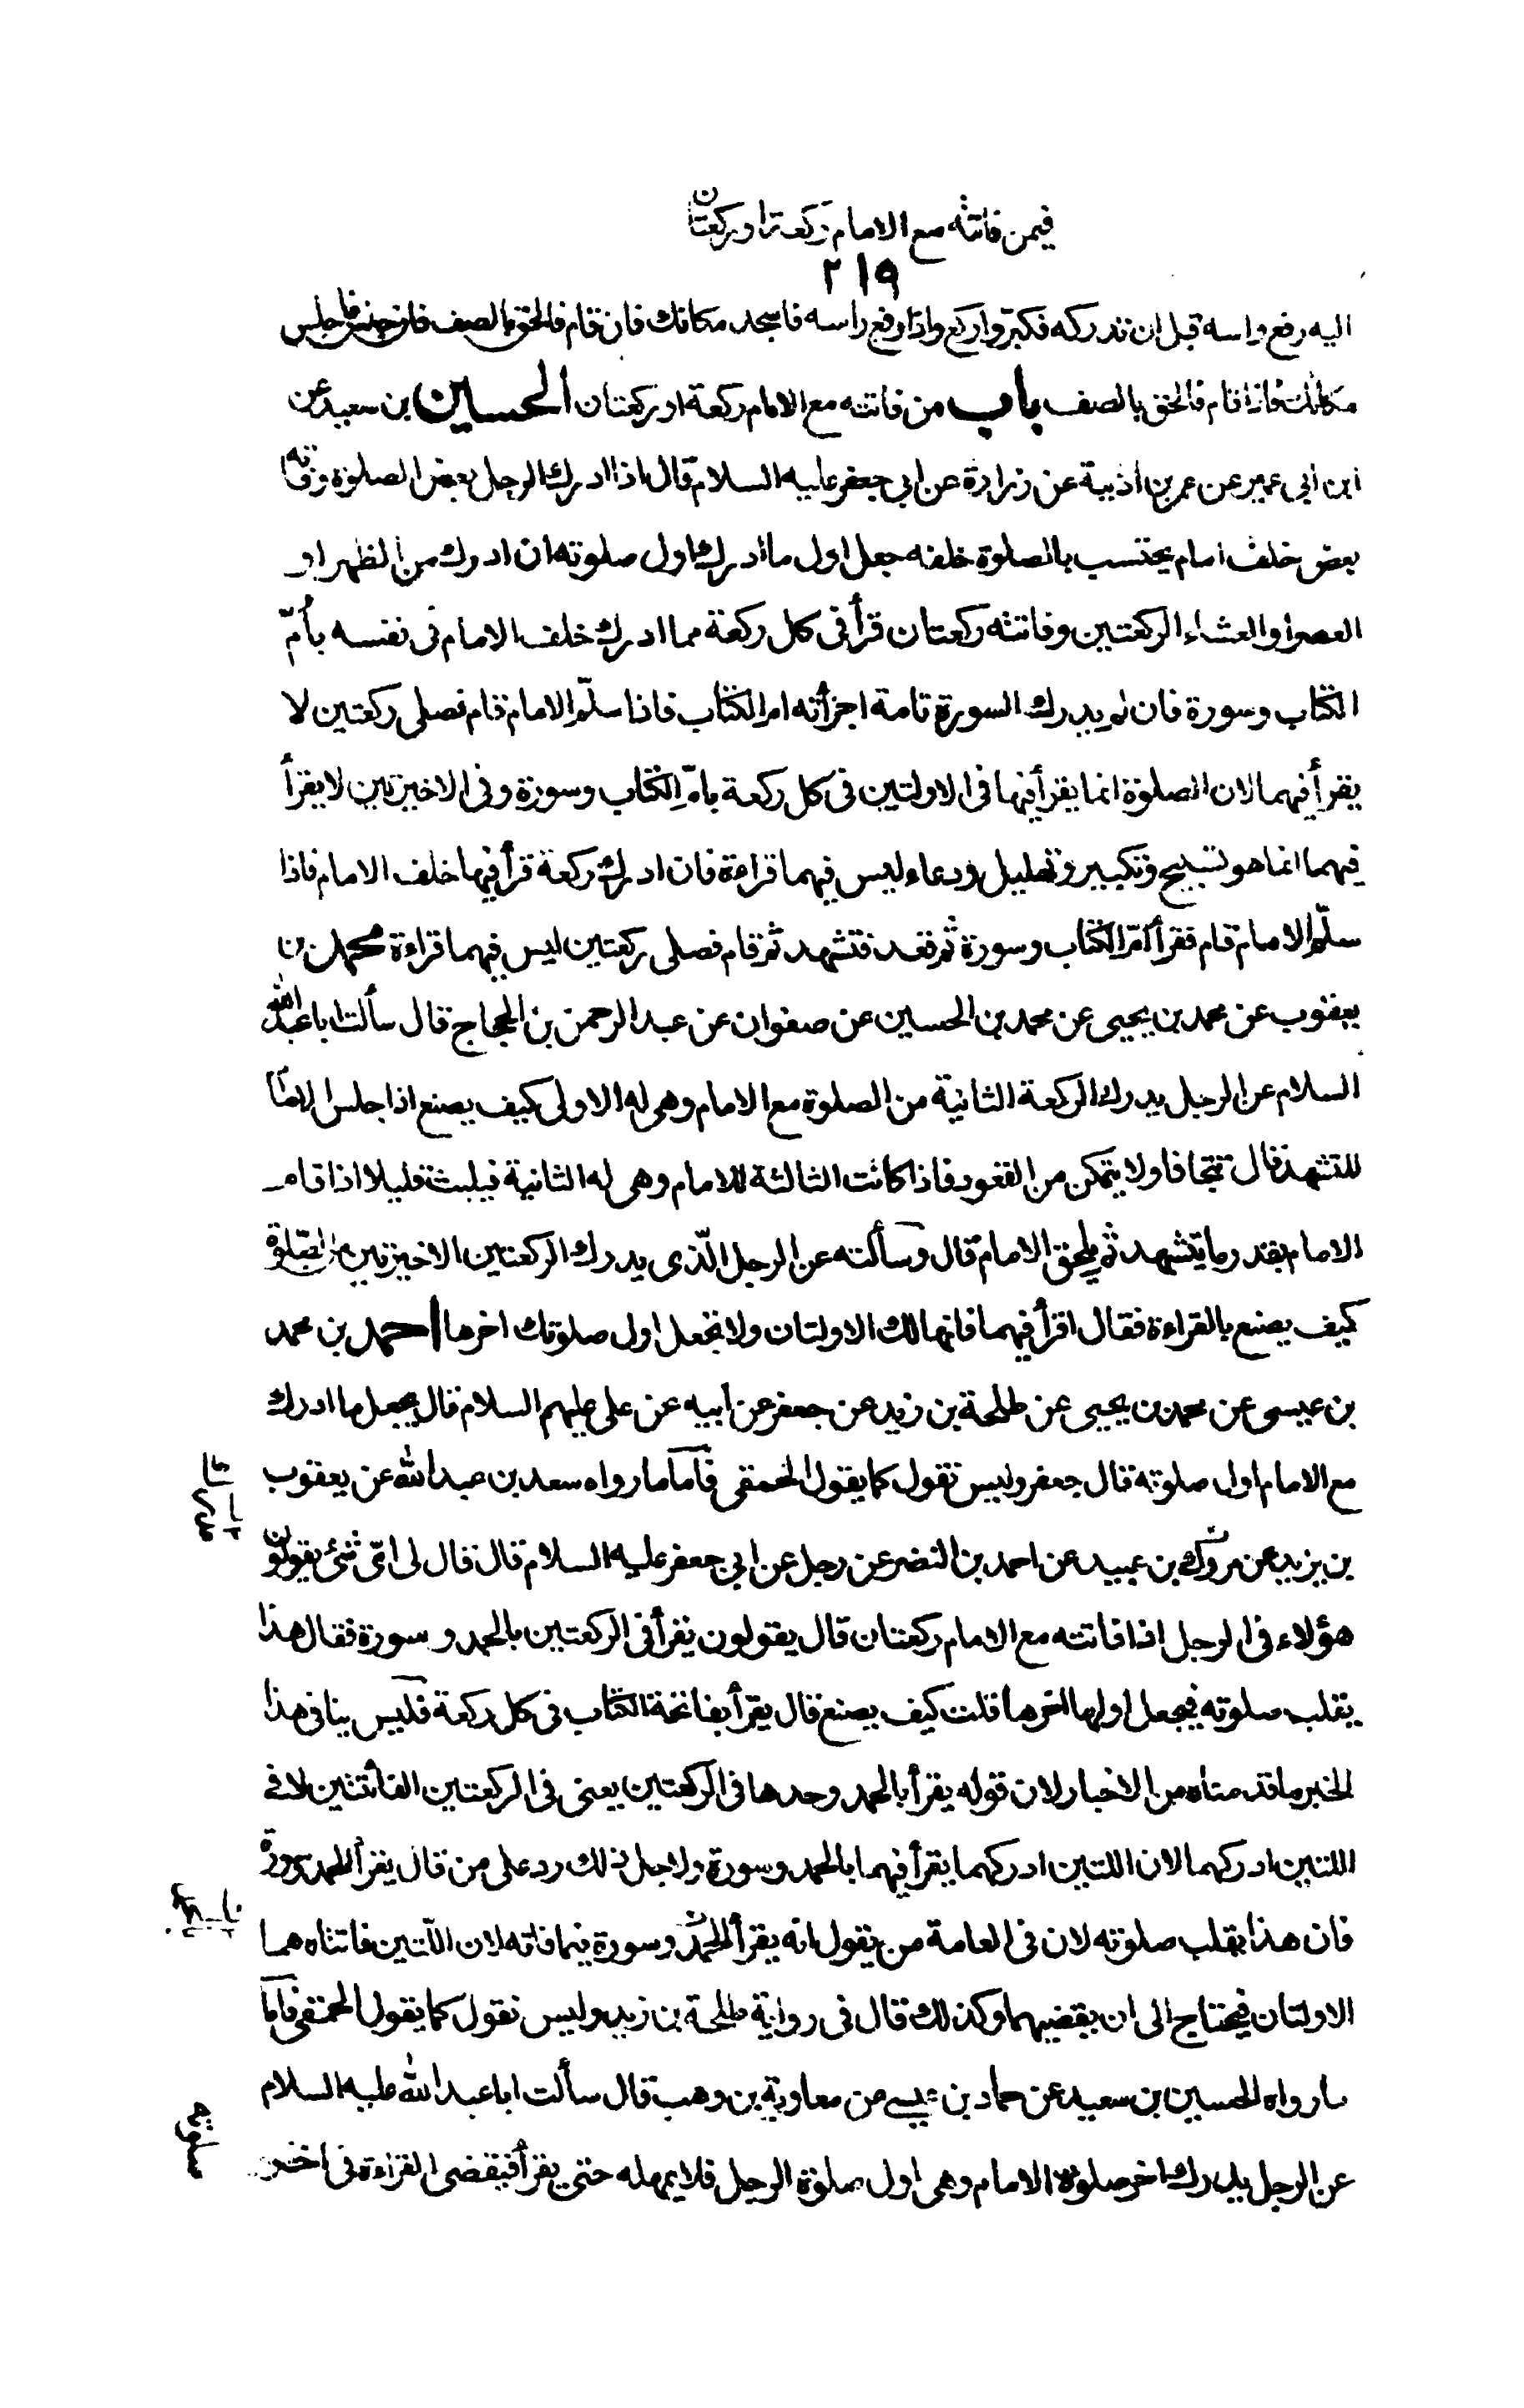 فيمن فاتته مع الامام ركعة او ركعتان
٢١٩
اليه رفع راسه قبل ان تدركه فكبّر واركع واذا رفع راسه فاسجد مكانك فان قام فالحق بالصف فان جلس فاجلس
مكانك فاذا قام فالحق بالصف باب من فاتته مع الامام ركعة او ركعتان الحسين بن سعيد عن
ابن ابى عمير عن عمر بن اذينة عن زرارة عن ابى جعفر عليه السلام قال اذا ادرك الرجل بعض الصلوة وفاته
بعض خلف امام يحتسب بالصلوة خلفه جعل اول ما ادرك اول صلوته ان ادرك من الظهر او
العصر او العشاء الركعتين وفاتته ركعتان قرأ فى كل ركعة مما ادرك خلف الامام فى نفسه بأمّ
الكتاب وسورة فان لم يدرك السورة تامة اجزأته ام الكتاب فاذا سلّم الامام قام فصلى ركعتين لا
يقرأ فيهما لان الصلوة انما يقرأ فيها فى الاولتين فى كل ركعة بامّ الكتاب وسورة وفى الاخيرتين لا يقرأ
فيهما انما هو تسبيح وتكبير وتهليل ودعاء ليس فيهما قراءة فان ادرك ركعة قرأ فيها خلف الامام فاذا
سلّم الامام قام فقرأ امّ الكتاب وسورة ثم قعد فتشهد ثم قام فصلى ركعتين ليس فيهما قراءة محمد بن
يعقوب عن محمد بن يحيى عن محمد بن الحسين عن صفوان عن عبد الرحمن بن الحجاج قال سألت ابا عبد الله
السلام عن الرجل يدرك الركعة الثانية من الصلوة مع الامام وهى له الاولى كيف يصنع اذا جلس الامام
للتشهد قال يتجافا ولا يتمكن من القعود فاذا كانت الثالثة للامام وهى له الثانية فيلبث قليلا اذا قام
الامام بقدر ما يتشهد ثم يلحق الامام قال وسألته عن الرجل الّذى يدرك الركعتين الاخيرتين من الصّلوة
كيف يصنع بالقراءة فقال اقرأ فيهما فانهما لك الاولتان ولا تجعل اول صلوتك اخرها احمد بن محمد
بن عيسى عن محمد بن يحيى عن طلحة بن زيد عن جعفر عن ابيه عن على عليهم السلام قال يجعل ما ادرك
مع الامام اول صلوته قال جعفر وليس نقول كما يقول الحمقى فأما ما رواه سعد بن عبد الله عن يعقوب
بن يزيد عن مروك بن عبيد عن احمد بن النضر عن رجل عن ابى جعفر عليه السلام قال قال لى اىّ شئ يقولون
هؤلاء فى الرجل اذا فاتته مع الامام ركعتان قال يقولون يقرأ فى الركعتين بالحمد و سورة فقال هذا
يقلب صلوته فيجعل اولها اخرها قلت كيف يصنع قال يقرأ بفاتحة الكتاب فى كل ركعة فليس ينافى هذا
الخبر ما قدمناه من الاخبار لان قوله يقرأ بالحمد وحدها فى الركعتين يعنى فى الركعتين الفائتتين لا فى
اللتين ادركهما لان اللتين ادركهما يقرأ فيهما بالحمد وسورة ولاجل ذلك رد على من قال يقرأ الحمد وسورة
فان هذا يقلب صلوته لان فى العامة من يقول انه يقرأ الحمد وسورة فيما فاته لان الّلتين فاتتاه هما
الاولتان فيحتاج الى ان يقضيهما وكذلك قال فى رواية طلحة بن زيد وليس نقول كما يقول الحمقى فأما
ما رواه الحسين بن سعيد عن حماد بن عيسى عن معاوية بن وهب قال سألت ابا عبد الله عليه السلام
عن الرجل يدرك اخر صلوة الامام وهى اول صلوة الرجل فلا يمهله حتى يقرأ فيقضى القراءة فى اخر
صلوته